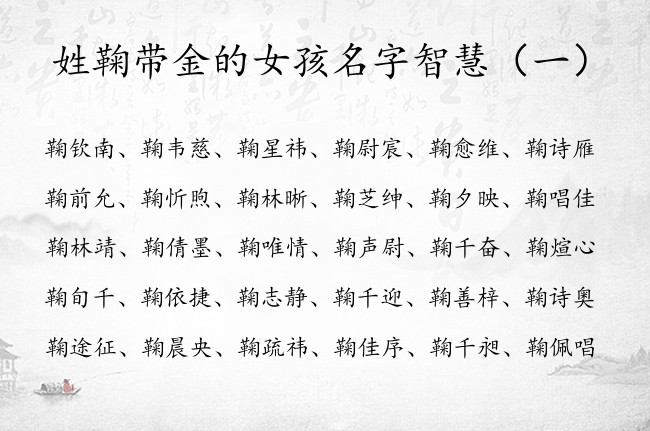 姓鞠带金的女孩名字智慧（一）
鞠钦南、鞠韦慈、鞠星祎、鞠尉宸、鞠愈维、鞠诗雁
鞠前允、鞠忻煦、鞠林晰、鞠芝绅、鞠夕映、鞠唱佳
鞠林靖、鞠倩墨、鞠唯情、鞠声尉、鞠千奋、鞠煊心
鞠旬千、鞠依捷、鞠志静、鞠千迎、鞠善梓、鞠诗奥
鞠途征、鞠晨央、鞠疏祎、鞠佳序、鞠千昶、鞠佩唱